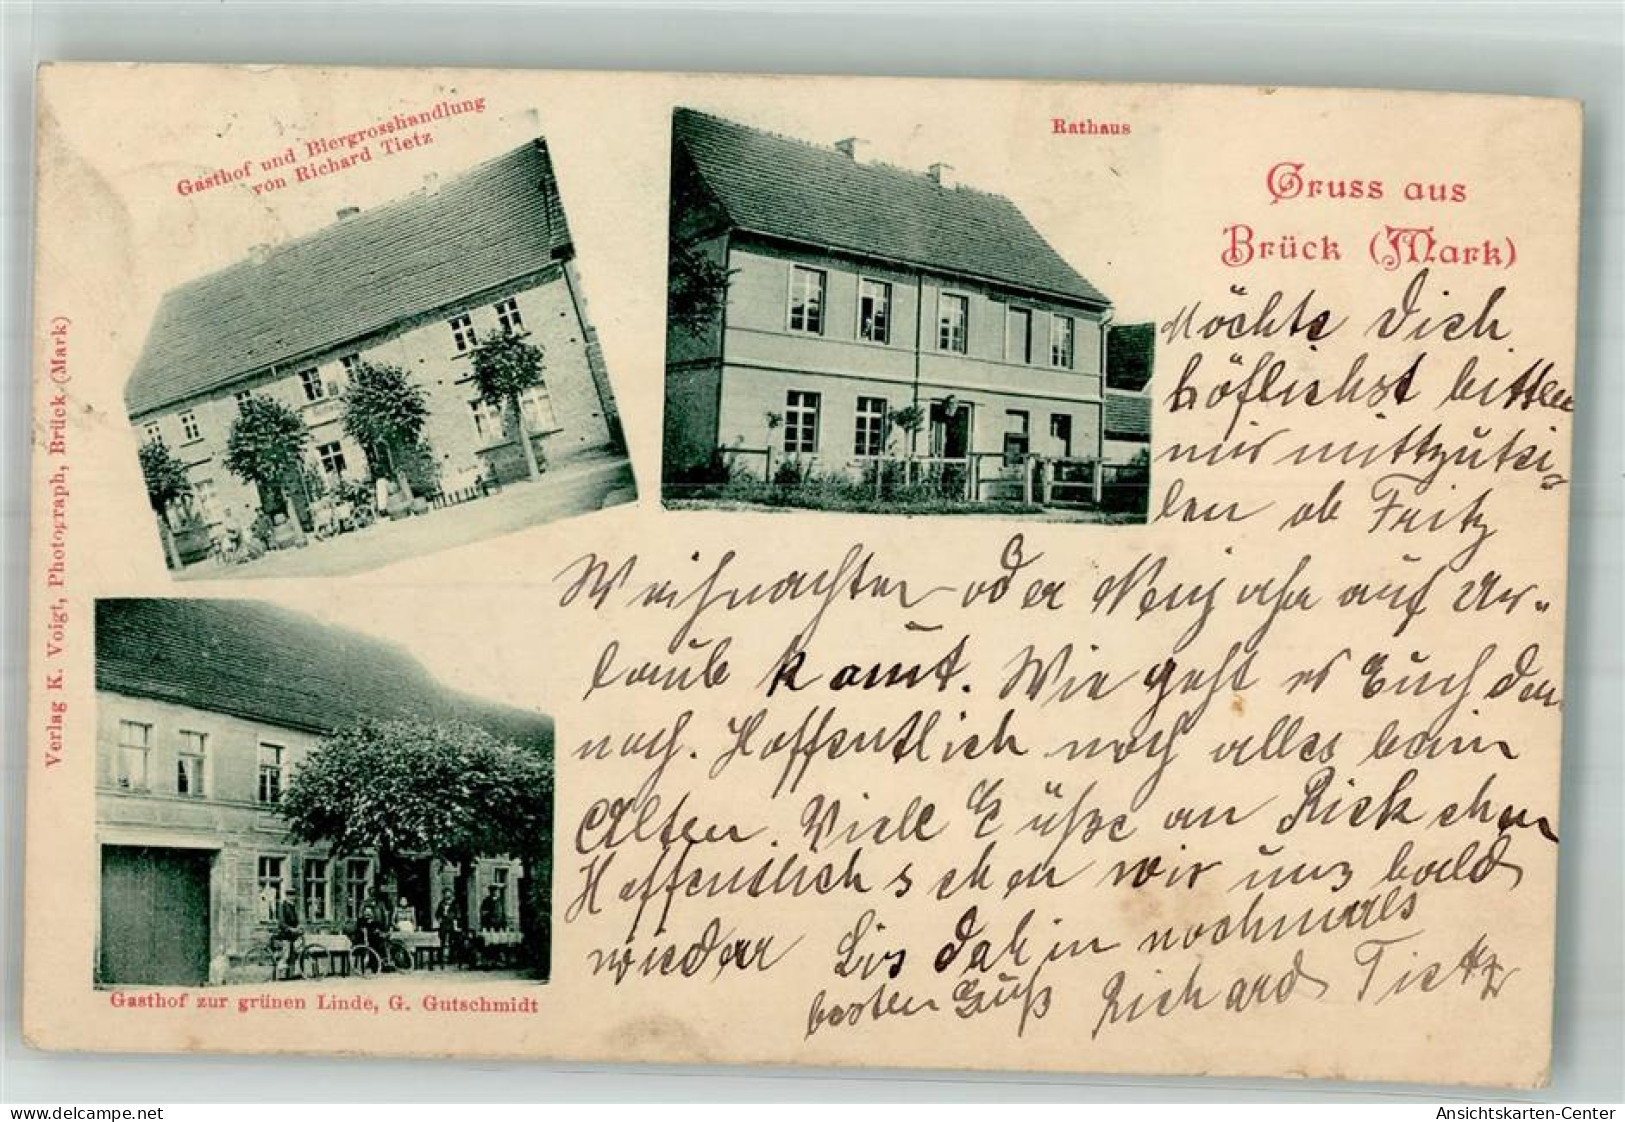 Gasthof und Biergrosshandlung
von Richard Tietz
Rathaus
Gruss aus
Brück (Mark)
Verlag K. Voigt, Photograph, Brück (Mark)
Möchte Dich
höflichst bitten
mir mittzutei-
len ob Fritz
Weihnachten oder Neujahr auf Ur-
laub komt. Wie geht es Euch den
noch. Hoffentlich noch alles beim
Alten. Viele Grüße an Riekchen
Hoffentlich sehen wir uns bald
wieder Bis dahin nochmals
besten Gruß Richard Tietz
Gasthof zur grünen Linde, G. Gutschmidt
Ansichtskarten-Center